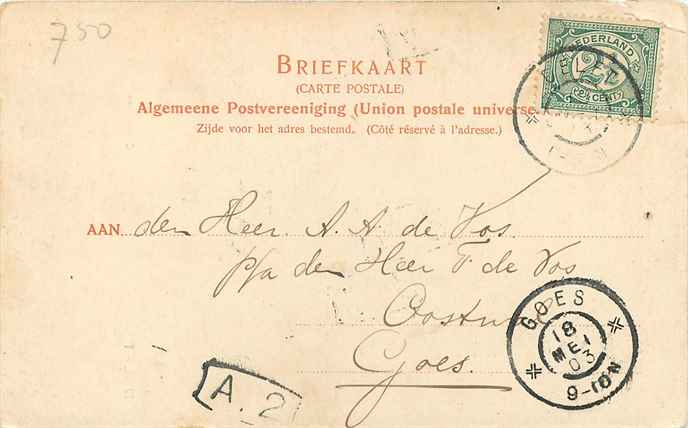 750
BRIEFKAART
(CARTE POSTALE)
Algemeene Postvereeniging (Union postale universe
Zijde voor het adres bestemd. (Côté réservé à l'adresse.)
NEDERLAND
2½
2½ CENT
AAN den Heer A. A. de Vos
p/a den Heer T. de Vos
Goes.
GOES
18
MEI
03
9-10N
A. 2